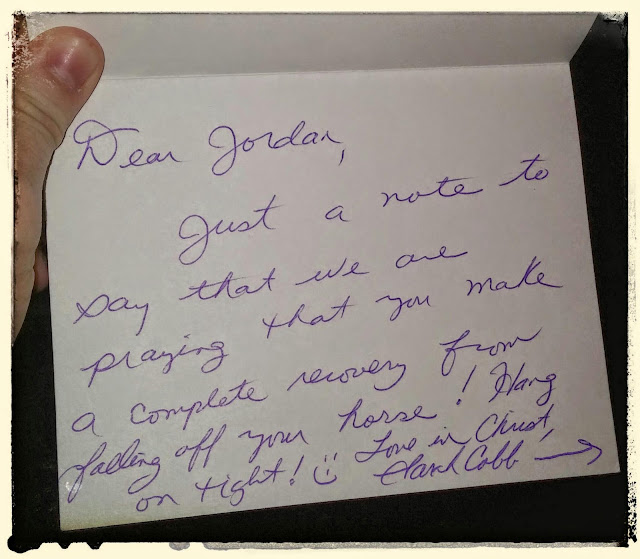 Dear Jordan,
Just a note to
say that we are
praying that you make
a complete recovery from
falling off your horse! Hang
on tight! Love in Christ,
Cobb